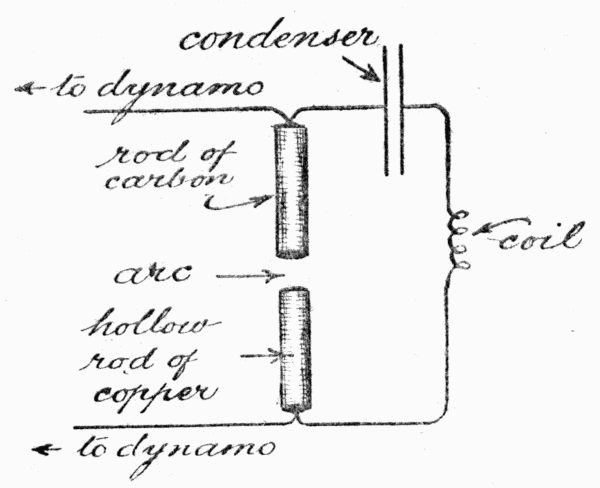 condenser
to dynamo
rod of
carbon
coil
arc
hollow
rod of
copper
to dynamo